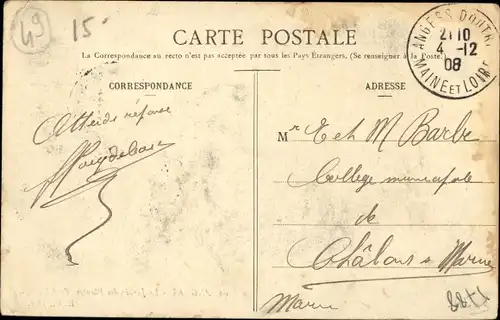 49
15
CARTE POSTALE
La Correspondance au recto n'est pas acceptée par tous les Pays Etrangers, (Se renseigner à la Poste.)
ANGERS DOUTRE
21 10
4 -12
08
MAINE ET LOIRE
CORRESPONDANCE
ADRESSE
Attends réponse
Mr E et M Barbe
Collège municipale
de
Châlons s Marne
Marne